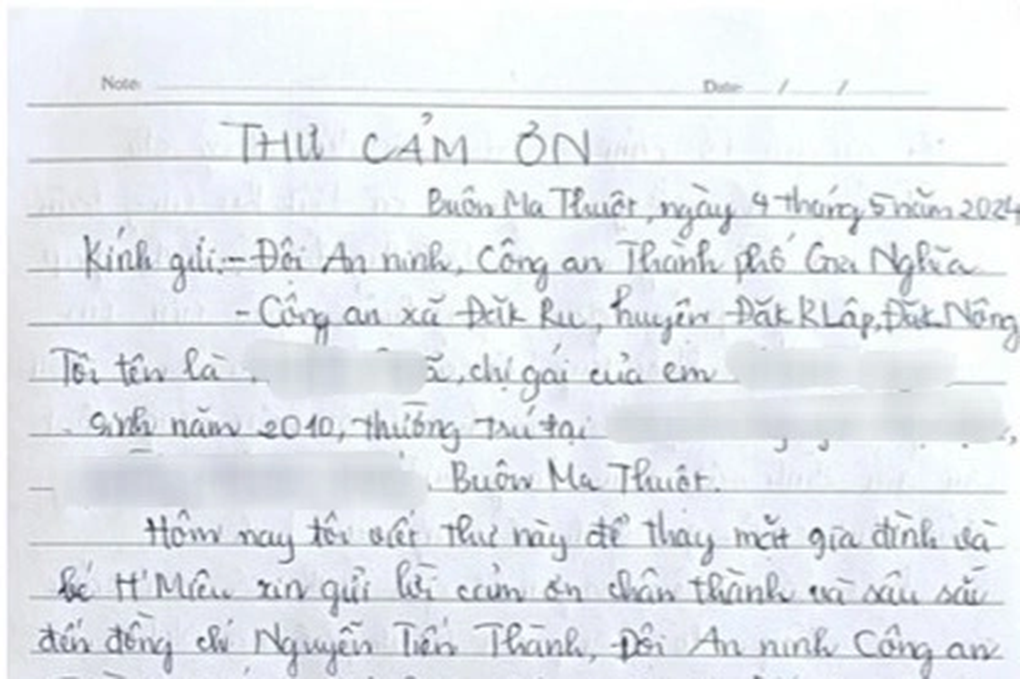 Note: Date: / /
THƯ CẢM ƠN
Buôn Ma Thuột, ngày 4 tháng 5 năm 2024
Kính gửi: - Đội An ninh, Công an Thành phố Gia Nghĩa
- Công an xã Đăk Ru, huyện Đăk RLấp, Đăk Nông
Tôi tên là chị gái của em
sinh năm 2010, thường trú tại
Buôn Ma Thuột.
Hôm nay tôi viết thư này để thay mặt gia đình và
bé H'Miêu xin gửi lời cảm ơn chân thành và sâu sắc
đến đồng chí Nguyễn Tiến Thành, Đội An ninh Công an